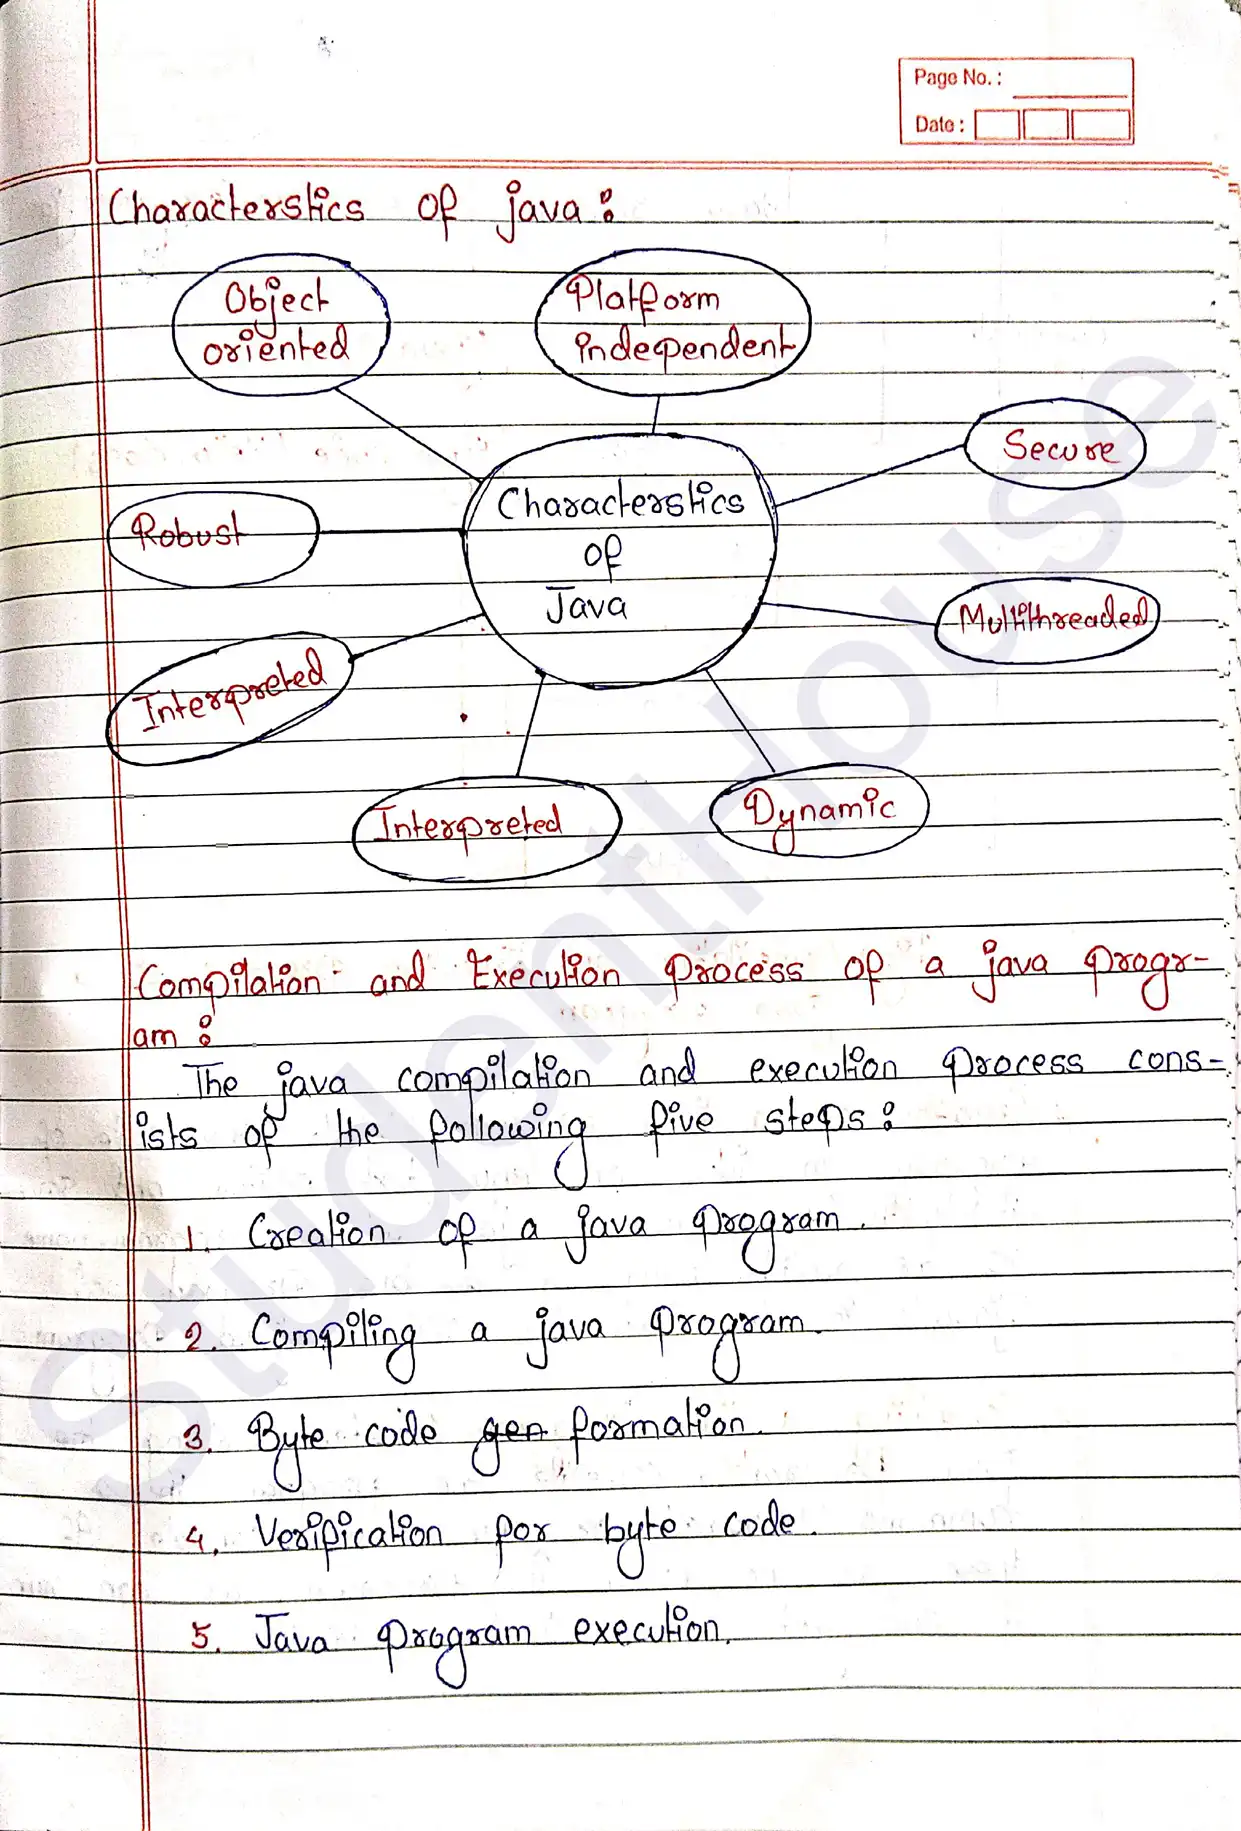 Page No. :
Date :
Characterstics of java :
Object
oriented
Platform
independent
Secure
Robust
Characterstics
of
Java
Multithreaded
Interpreted
Interpreted
Dynamic
Compilation and Execution process of a java progr-
am :
The java compilation and execution process cons-
ists of the following five steps :
1. Creation of a java program.
2. Compiling a java program.
3. Byte code gen formation.
4. Verification for byte code.
5. Java program execution.
StudentHouse